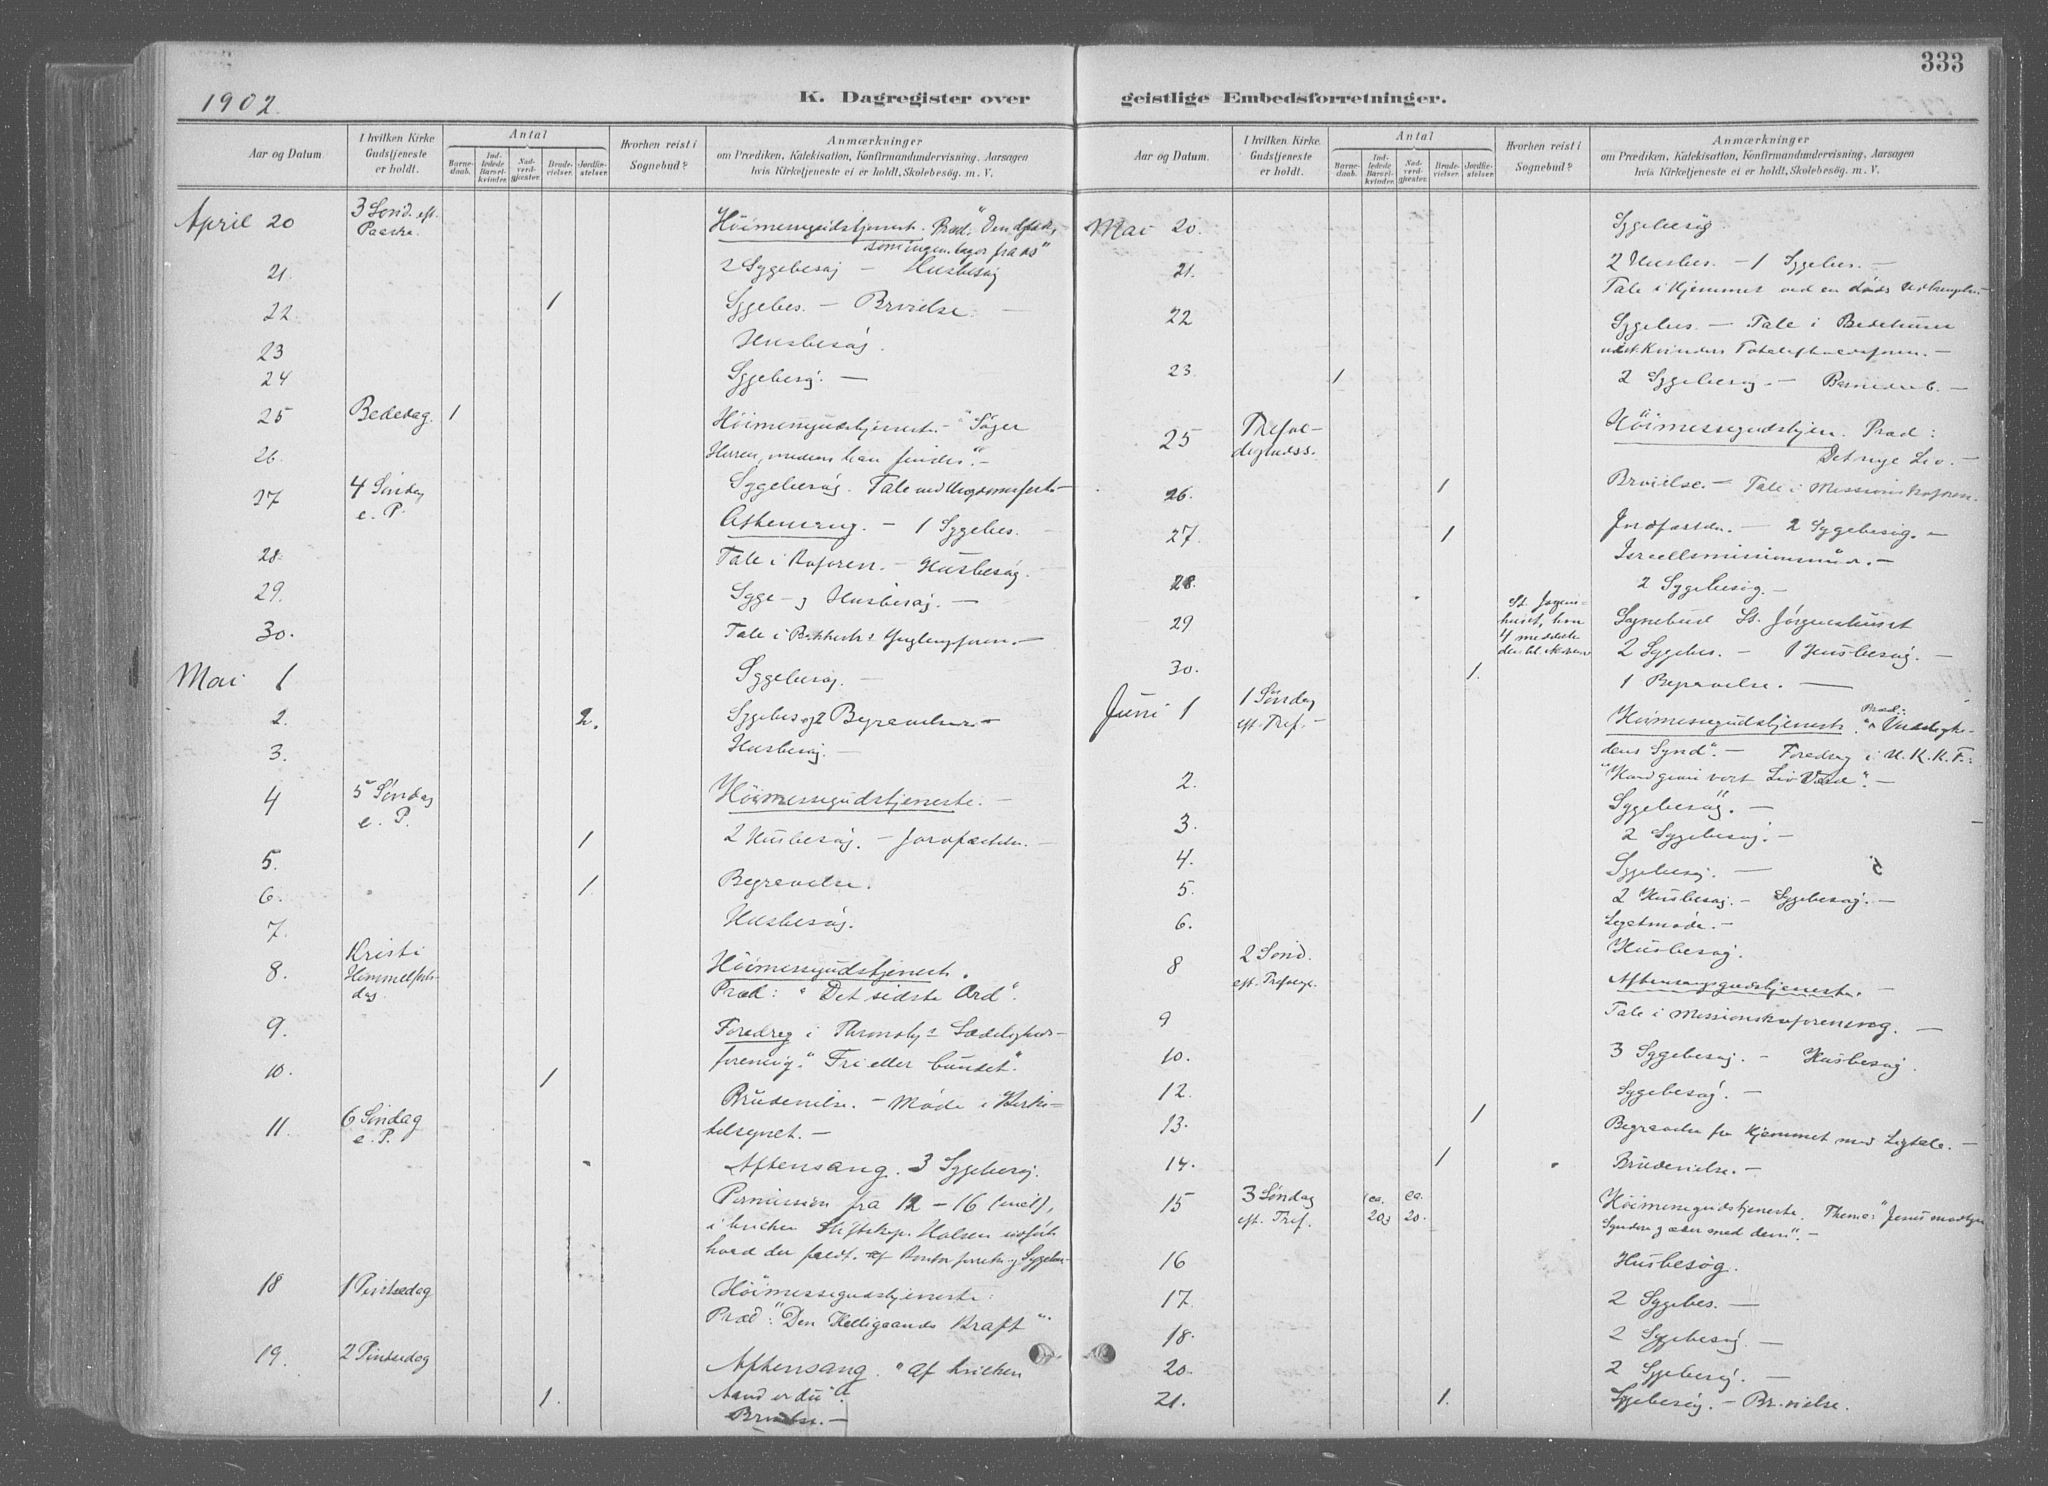 333
1902.
K. Dagregister over geistlige Embedsforretninger.
Aar og Datum
I hvilken Kirke Gudstjeneste er holdt.
Antal
Barnedaab.
Indledede Barselkvinder.
Nadverdgjæster.
Brudevielser.
Jordfæstelser.
Hvorhen reist i Sognebud?
Anmærkninger
om Prædiken, Katekisation, Konfirmandundervisning, Aarsagen
hvis Kirketjeneste ei er holdt, Skolebesög m. V.
April 20 3 Sønd. eft. Paaske. Höimessegudstjeneste. Præd:
21. 2 Sygebesøg — Husbesøg
22. 1 Sygebes. — Brvielse. —
23 Husbesøg.
24 Sygebesøg. —
25 Bededag. 1 Höimessegudstjeneste. — "Søger
26. Herren, medens han findes". —
27 4 Søndag e. P. Sygebesøg. Tale ved
Aftensang. — 1 Sygebes.
28. Tale i — Husbesøg.
29. Syge- og Husbesøg. —
30. Tale i —
Mai 1 Sygebesøg. —
2. 2. Sygebes og 2 Begravelser. —
3. Husbesøg. —
4 5 Søndag e. P. Höimessegudstjeneste. —
5. 1 2 Husbesøg. — Jordfæstelse. —
6. 1 Begravelse.
7. Husbesøg.
8. Kristi Himmelfartsdag Höimessegudstjeneste.
Præd: "Det sidste Ord".
9. Foredrag i Sædeligheds-
forening. "Fri eller bundet".
10. 1 Brudevielse. — Møde i Kirke-
11. 6 Søndag e. P. tilsynet. —
Aftensang. 3 Sygebesøg.
Permission fra 12 — 16 (incl),
i hvilken Stiftskap. Halsen udførte
hvad der faldt af
18 1 Pintsedag Höimessegudstjeneste:
Præd: "Den Helligaands Kraft".
19. 2 Pintsedag Aftensang. "Af hvilken
1. Aand er du".
Brvielse. —
Aar og Datum.
I hvilken Kirke Gudstjeneste er holdt.
Antal
Barnedaab.
Indledede Barselkvinder.
Nadverdgjæster.
Brudevielser.
Jordfæstelser.
Hvorhen reist i Sognebud?
Anmærkninger
om Prædiken, Katekisation, Konfirmandundervisning, Aarsagen
hvis Kirketjeneste ei er holdt, Skolebesög m. V.
Mai 20. Sygebesøg.
21. 2 Husbes. — 1 Sygebes. —
Tale i Hjemmet ved en døds
22 Sygebes. — Tale i Bedehuset
23. 1 2 Sygebesøg. — Barnedaab. —
25 Trefoldighedss. Höimessegudstjen. Præd:
Det nye Liv. —
26. 1 Brvielse. — Tale i Missionskvforen.
27. 1 Jordfæstelse. — 2 Sygebesøg. —
Israelsmissionsmøde. —
28. 2 Sygebesøg. —
29 St. Jørgenshuset, hvor 4 meddeltes den hl. Nadver Sognebud St. Jørgenshuset
2 Sygebes. — 1 Husbesøg. —
30. 1. 1 Begravelse. —
Juni 1 1 Søndag eft. Tref. — Höimessegudstjeneste. Præd:
dens Synd". — Foredrag i U. K. K. F.:
2. Sygebesøg. —
3. 2 Sygebesøg. —
4. Sygebesøg. —
5. 2 Husbesøg. — Sygebesøg. —
6. Legetmøde. —
Husbesøg.
8 2 Sønd. eft. Trefolg. Aftensangsgudstjeneste. —
9 Tale i Missionskvforening. —
10. 3 Sygebesøg. — Husbesøg.
12. Sygebesøg. —
13. 1 Begravelse fra Hjemmet med Ligtale. —
14. 1 Brudevielse. —
15 3 Søndag eft. Tref. ca. 20 ca. 20. Höimessegudstjeneste. Thema: "Jesus modtager
Syndere og æder med dem". —
16 Husbesøg.
17. 2 Sygebes. —
18. 2 Sygebesøg. —
20. 2 Sygebesøg. —
21. 1. Sygebesøg. — Brvielse.